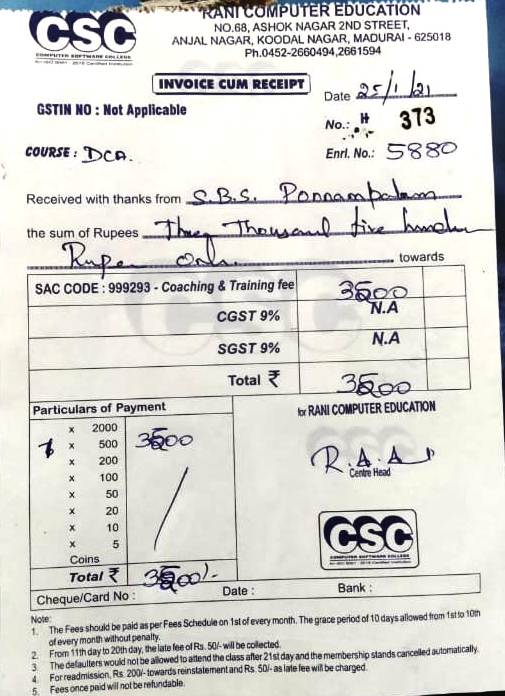 CSC
COMPUTER SOFTWARE COLLEGE
An ISO 9001 : 2015 Certified Institution
RANI COMPUTER EDUCATION
NO.68, ASHOK NAGAR 2ND STREET,
ANJAL NAGAR, KOODAL NAGAR, MADURAI - 625018
Ph.0452-2660494,2661594
INVOICE CUM RECEIPT
Date 25/1/21
GSTIN NO : Not Applicable
No.: H 373
COURSE : DCA.
Enrl. No.: 5880
Received with thanks from S.B.S. Ponnampalam
the sum of Rupees Three Thousand five hundred
Rupee Only. towards
SAC CODE : 999293 - Coaching & Training fee 3500
CGST 9% N.A
SGST 9% N.A
Total ₹ 3500
Particulars of Payment
for RANI COMPUTER EDUCATION
x 2000
7 x 500 3500
x 200
x 100
x 50
x 20
x 10
x 5
Coins
R.A.A
Centre Head
CSC
COMPUTER SOFTWARE COLLEGE
An ISO 9001 : 2015 Certified Institution
Total ₹ 3500/-
Cheque/Card No : Date : Bank :
Note:
1. The Fees should be paid as per Fees Schedule on 1st of every month. The grace period of 10 days allowed from 1st to 10th
of every month without penalty.
2. From 11th day to 20th day, the late fee of Rs. 50/- will be collected.
3. The defaulters would not be allowed to attend the class after 21st day and the membership stands cancelled automatically.
4. For readmission, Rs. 200/- towards reinstatement and Rs. 50/- as late fee will be charged.
5. Fees once paid will not be refundable.